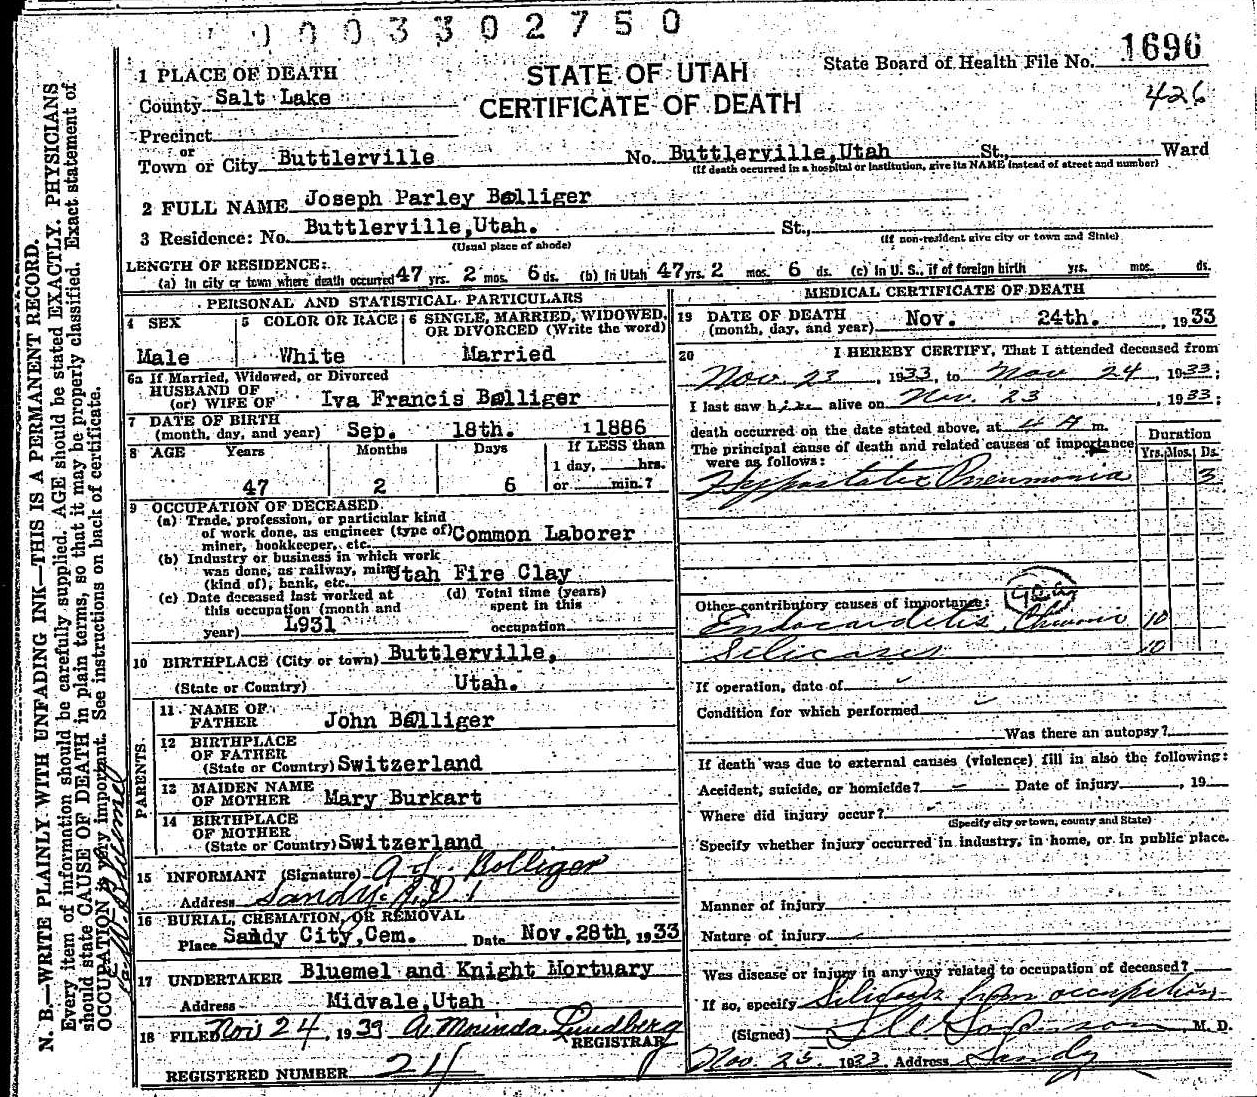 0003302750
1696
State Board of Health File No.
426
STATE OF UTAH
CERTIFICATE OF DEATH
1 PLACE OF DEATH
County Salt Lake
Precinct
or
Town or City Buttlerville No. Buttlerville,Utah St., Ward
(If death occurred in a hospital or institution, give its NAME instead of street and number)
2 FULL NAME Joseph Parley Bolliger
3 Residence: No. Buttlerville,Utah. St.,
(Usual place of abode) (If non-resident give city or town and State)
LENGTH OF RESIDENCE:
(a) In city or town where death occurred 47 yrs. 2 mos. 6 ds. (b) In Utah 47 yrs. 2 mos. 6 ds. (c) In U. S., if of foreign birth yrs. mos. ds.
PERSONAL AND STATISTICAL PARTICULARS
4 SEX 5 COLOR OR RACE 6 SINGLE, MARRIED, WIDOWED, OR DIVORCED (Write the word)
Male White Married
6a If Married, Widowed, or Divorced
HUSBAND OF
(or) WIFE OF Iva Francis Bolliger
7 DATE OF BIRTH
(month, day, and year) Sep. 18th. 1886
8 AGE Years Months Days If LESS than
1 day, hrs.
47 2 6 or min.?
9 OCCUPATION OF DECEASED
(a) Trade, profession, or particular kind
of work done, as engineer (type of) Common Laborer
miner, bookkeeper, etc.
(b) Industry or business in which work
was done, as railway, mine Utah Fire Clay
(kind of), bank, etc.
(c) Date deceased last worked at (d) Total time (years)
this occupation (month and spent in this
year) L931 occupation
10 BIRTHPLACE (City or town) Buttlerville,
(State or Country) Utah.
PARENTS
11 NAME OF
FATHER John Bolliger
12 BIRTHPLACE
OF FATHER
(State or Country) Switzerland
13 MAIDEN NAME
OF MOTHER Mary Burkart
14 BIRTHPLACE
OF MOTHER
(State or Country) Switzerland
15 INFORMANT (Signature) A L. Bolliger
Address Sandy R.D. 1
16 BURIAL, CREMATION, OR REMOVAL
Place Sandy City,Cem. Date Nov.28th, 1933
17 UNDERTAKER Bluemel and Knight Mortuary
Address Midvale,Utah
18 FILED Nov 24, 1933 A. Morinda Lundberg
REGISTRAR
REGISTERED NUMBER 24
MEDICAL CERTIFICATE OF DEATH
19 DATE OF DEATH
(month, day, and year) Nov. 24th., 1933
20 I HEREBY CERTIFY, That I attended deceased from
Nov. 23, 1933, to Nov 24, 1933;
I last saw him alive on Nov. 23, 1933;
death occurred on the date stated above, at 4 A m.
The principal cause of death and related causes of importance
were as follows:
Duration
Yrs. Mos. Ds.
Hypostatic Pneumonia 3
Other contributory causes of importance:
Endocarditis, Chronic 10
Silicosis 10
If operation, date of
Condition for which performed
Was there an autopsy?
If death was due to external causes (violence) fill in also the following:
Accident, suicide, or homicide? Date of injury , 19
Where did injury occur?
(Specify city or town, county and State)
Specify whether injury occurred in industry, in home, or in public place.
Manner of injury
Nature of injury
Was disease or injury in any way related to occupation of deceased?
If so, specify Silicosis from occupation
(Signed) M. D.
Nov. 25, 1933 Address Sandy
N. B.—WRITE PLAINLY WITH UNFADING INK—THIS IS A PERMANENT RECORD.
Every item of information should be carefully supplied. AGE should be stated EXACTLY. PHYSICIANS
should state CAUSE OF DEATH in plain terms, so that it may be properly classified. Exact statement of
OCCUPATION is very important. See instructions on back of certificate.